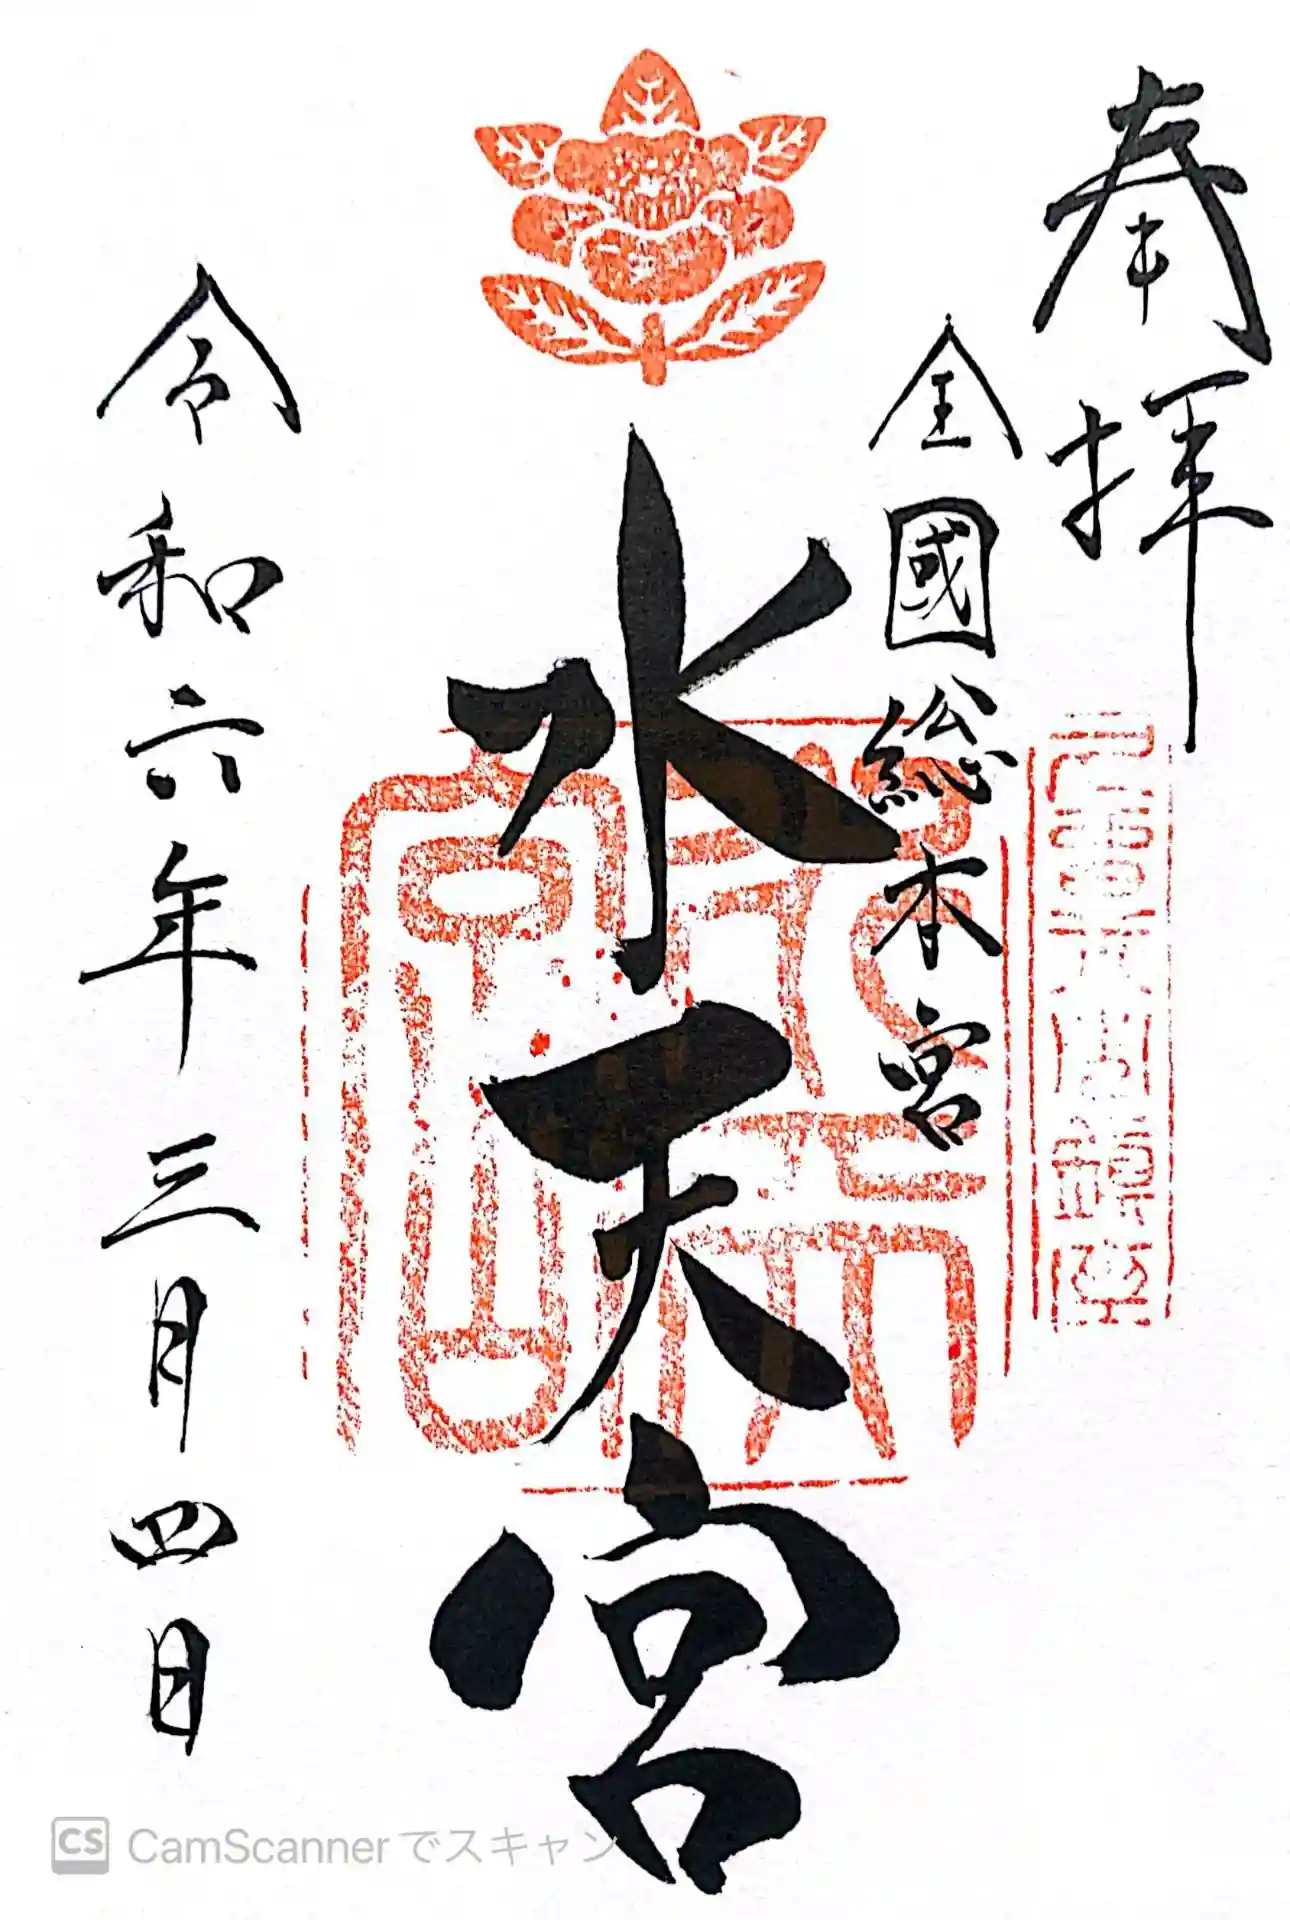 奉拝
全國総本宮
水天宮
令和六年三月四日
CS CamScannerでスキャン